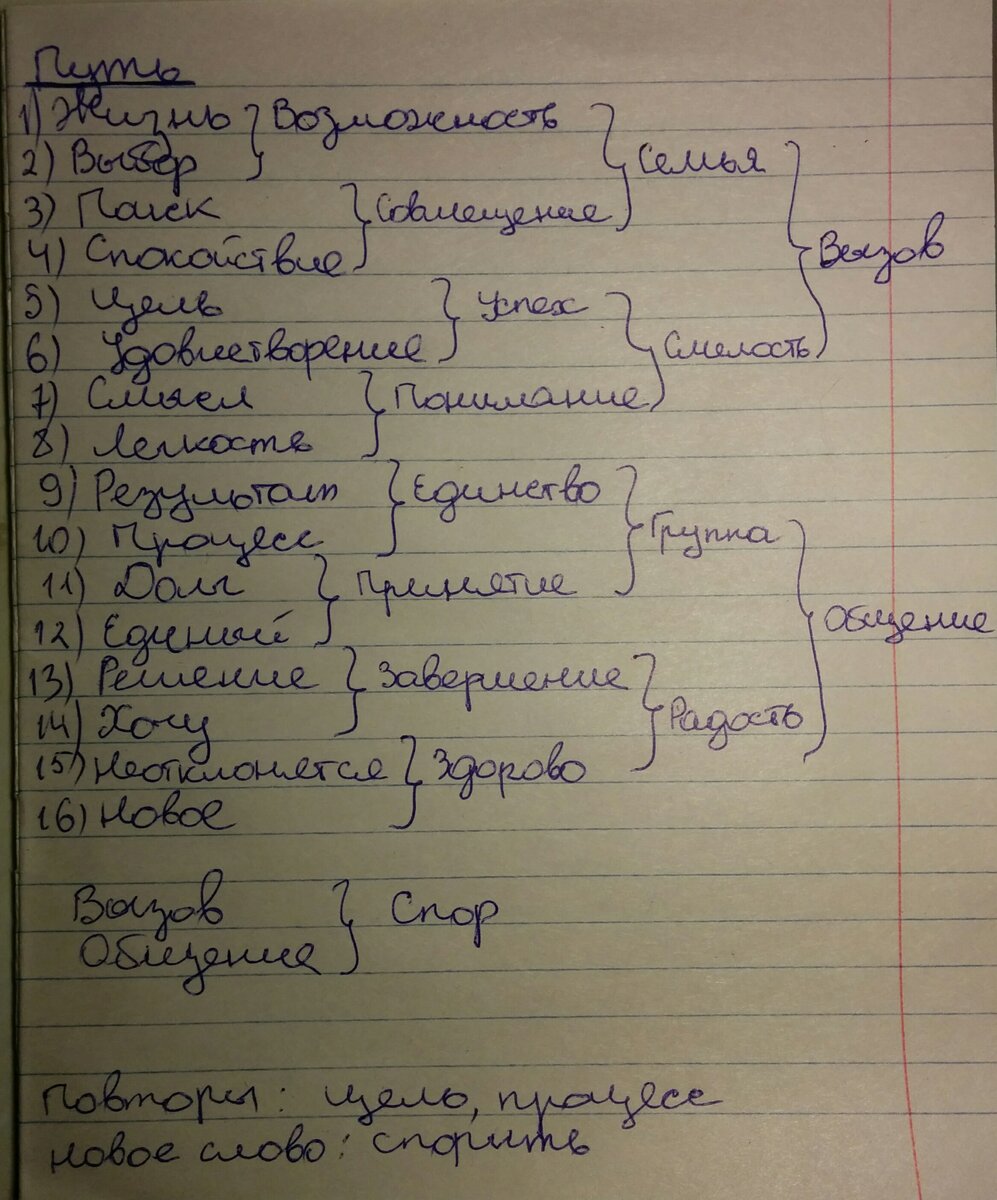 Путь
1) Жизнь } Возможность
2) Выбор } Семья
3) Поиск } Совмещение
4) Спокойствие } Вызов
5) Цель } Успех
6) Удовлетворение } Смелость
7) Смысл } Понимание
8) Легкость
9) Результат } Единство
10) Процесс } Группа
11) Долг } Принятие
12) Единый } Общение
13) Решение } Завершение
14) Хочу } Радость
15) Неотклонятся } Здорово
16) Новое
Вызов } Спор
Общение
Повторы: цель, процесс
новое слово: спорить